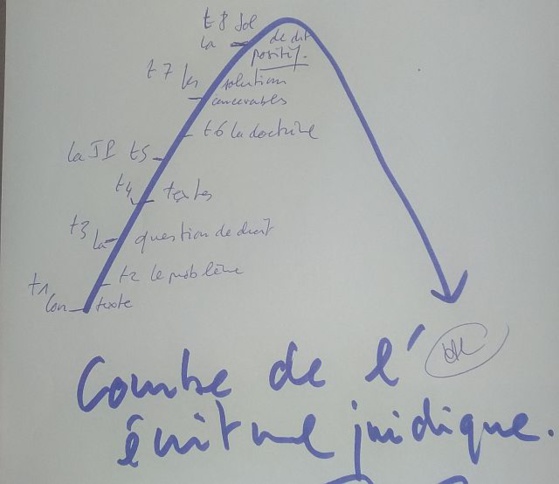 t8 Sol
la de dt
positif.
t7 les solution
concevables
t6 la doctrine
la JP t5
t4 textes
t3 la question de droit
t2 le problème
t1 Con texte
Courbe de l'
écriture juridique.